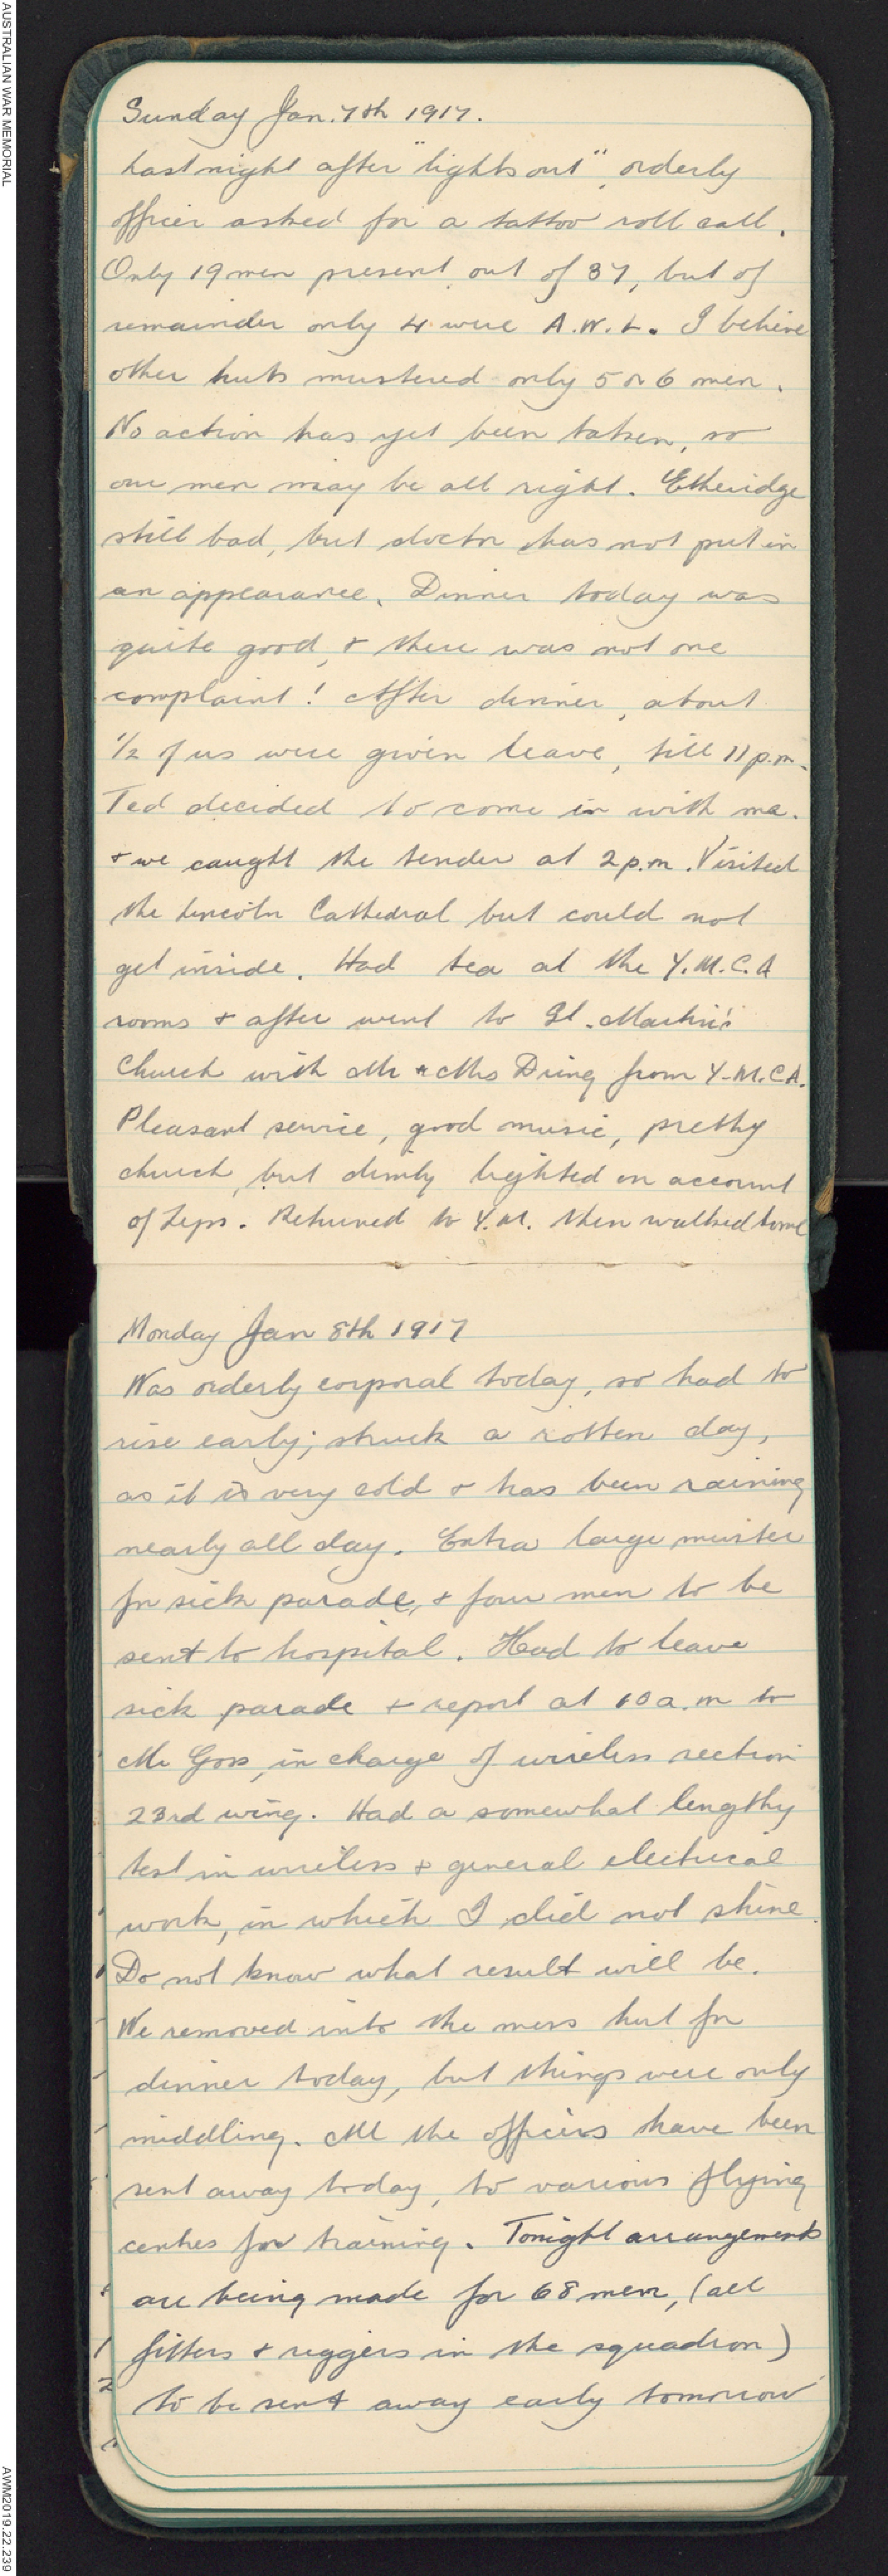 AUSTRALIAN WAR MEMORIAL
Sunday Jan. 7th 1917.
Last night after "lights out", orderly
officer asked for a tattoo roll call.
Only 19 men present out of 37, but of
remainder only 4 were A.W.L. I believe
other huts mustered only 5 or 6 men.
No action has yet been taken, so
our men may be all right. Etheridge
still bad, but doctor has not put in
an appearance. Dinner today was
quite good, & there was not one
complaint! After dinner, about
1/2 of us were given leave, till 11 p.m.
Ted decided to come in with me.
& we caught the tender at 2 p.m. Visited
the Lincoln Cathedral but could not
get inside. Had tea at the Y.M.C.A
rooms & after went to St. Martin's
Church with Mr & Mrs Dring from Y.M.C.A.
Pleasant service, good music, pretty
church, but dimly lighted on account
of Zeps. Returned to Y.M. then walked home
Monday Jan 8th 1917
Was orderly corporal today, so had to
rise early; struck a rotten day,
as it is very cold & has been raining
nearly all day. Extra large muster
for sick parade, & four men to be
sent to hospital. Had to leave
sick parade & report at 10 a.m to
Mr Goss, in charge of wireless section
23rd wing. Had a somewhat lengthy
test in wireless & general electrical
work, in which I did not shine.
Do not know what result will be.
We removed into the mess hut for
dinner today, but things were only
middling. All the officers have been
sent away today, to various flying
centres for training. Tonight arrangements
are being made for 68 men, (all
fitters & riggers in the squadron)
to be sent away early tomorrow
AWM2019.22.239